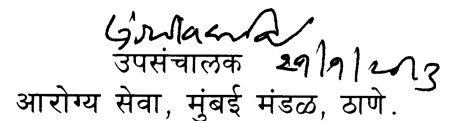 उपसंचालक २१/१/२०१३
आरोग्य सेवा, मुंबई मंडळ, ठाणे.